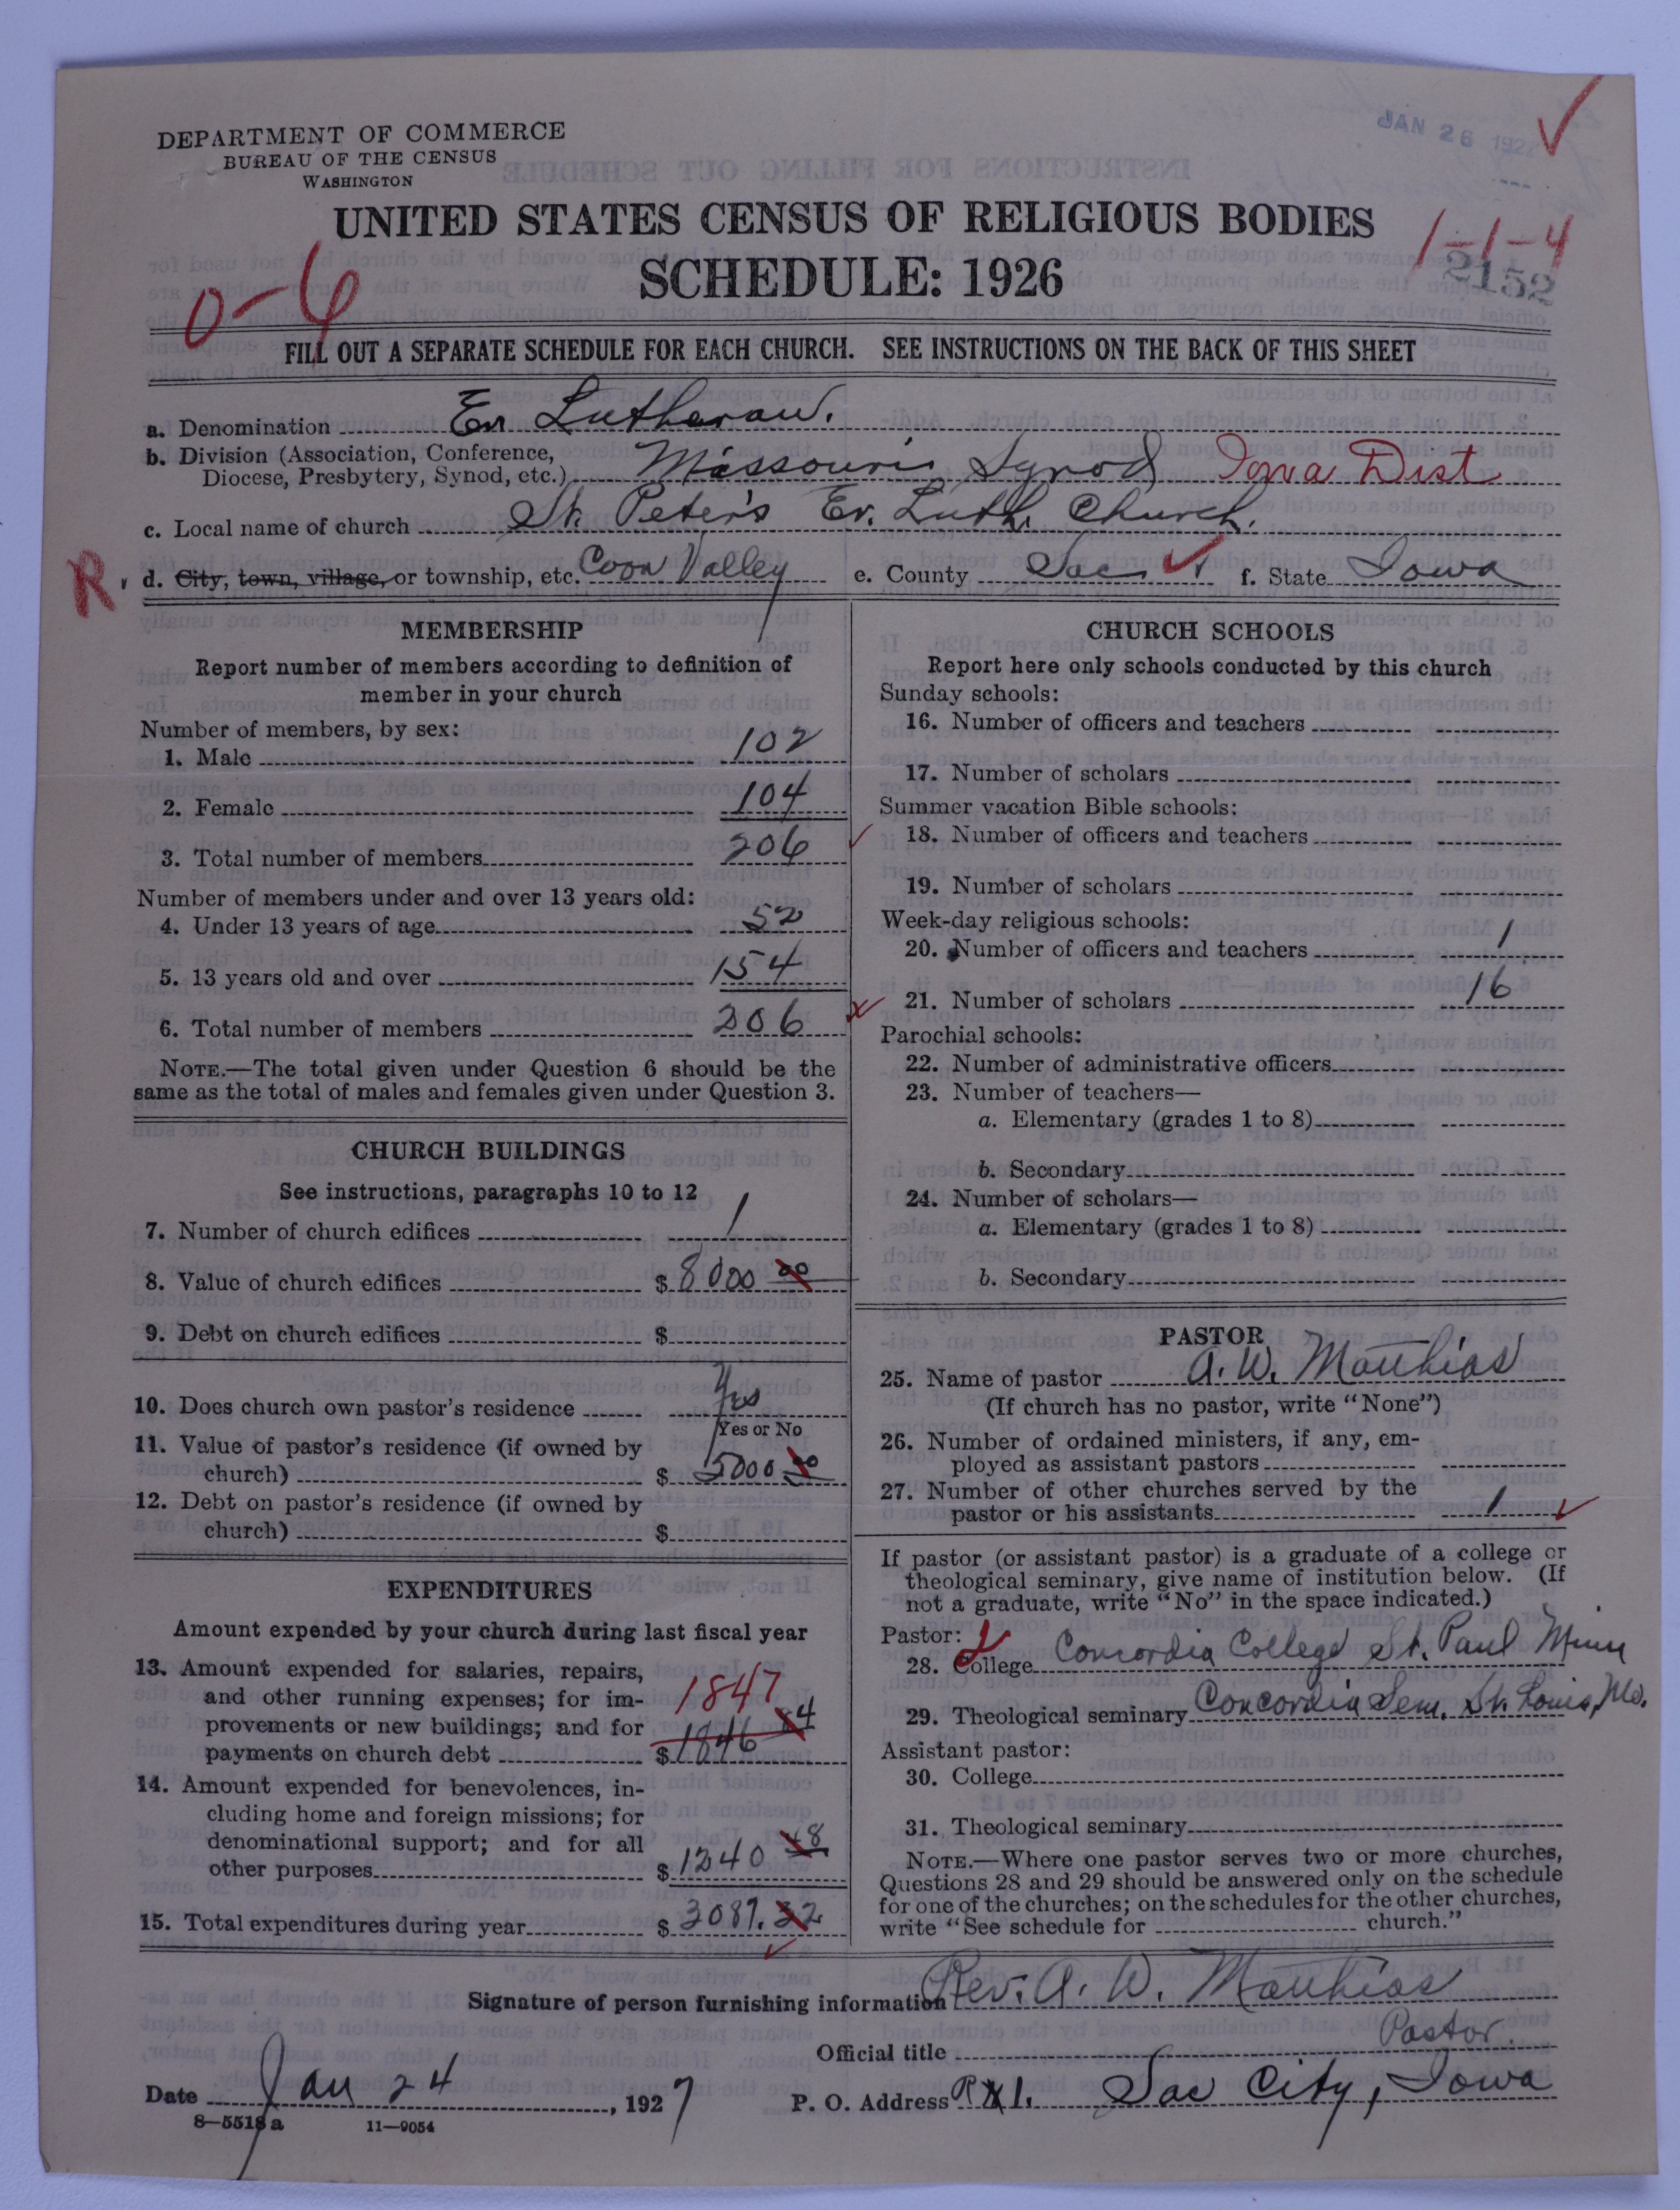 JAN 26 192
DEPARTMENT OF COMMERCE
BUREAU OF THE CENSUS
WASHINGTON
UNITED STATES CENSUS OF RELIGIOUS BODIES
1-1-4
SCHEDULE: 1926
2152
0-6
FILL OUT A SEPARATE SCHEDULE FOR EACH CHURCH. SEE INSTRUCTIONS ON THE BACK OF THIS SHEET
a. Denomination Ev Lutheran.
b. Division (Association, Conference,
Diocese, Presbytery, Synod, etc.) Missouri Synod Iowa Dist
c. Local name of church St. Peter's Ev. Luth. Church.
R d. City, town, village, or township, etc. Coon Valley e. County Sac f. State Iowa
MEMBERSHIP
Report number of members according to definition of
member in your church
Number of members, by sex:
1. Male 102
2. Female 104
3. Total number of members 206
Number of members under and over 13 years old:
4. Under 13 years of age 52
5. 13 years old and over 154
6. Total number of members 206
NOTE.—The total given under Question 6 should be the
same as the total of males and females given under Question 3.
CHURCH BUILDINGS
See instructions, paragraphs 10 to 12
7. Number of church edifices 1
8. Value of church edifices $ 8000 00
9. Debt on church edifices $
10. Does church own pastor's residence Yes
Yes or No
11. Value of pastor's residence (if owned by
church) $ 5000 00
12. Debt on pastor's residence (if owned by
church) $
EXPENDITURES
Amount expended by your church during last fiscal year
13. Amount expended for salaries, repairs,
and other running expenses; for im- 1847
provements or new buildings; and for
payments on church debt $ 1846 84
14. Amount expended for benevolences, in-
cluding home and foreign missions; for
denominational support; and for all
other purposes $ 1240 48
15. Total expenditures during year $ 3087.32
CHURCH SCHOOLS
Report here only schools conducted by this church
Sunday schools:
16. Number of officers and teachers
17. Number of scholars
Summer vacation Bible schools:
18. Number of officers and teachers
19. Number of scholars
Week-day religious schools:
20. Number of officers and teachers 1
21. Number of scholars 16
Parochial schools:
22. Number of administrative officers
23. Number of teachers—
a. Elementary (grades 1 to 8)
b. Secondary
24. Number of scholars—
a. Elementary (grades 1 to 8)
b. Secondary
PASTOR
25. Name of pastor A. W. Matthias
(If church has no pastor, write "None")
26. Number of ordained ministers, if any, em-
ployed as assistant pastors
27. Number of other churches served by the
pastor or his assistants 1
If pastor (or assistant pastor) is a graduate of a college or
theological seminary, give name of institution below. (If
not a graduate, write "No" in the space indicated.)
Pastor:
28. College Concordia College St. Paul Minn
29. Theological seminary Concordia Sem. St. Louis, Mo.
Assistant pastor:
30. College
31. Theological seminary
NOTE.—Where one pastor serves two or more churches,
Questions 28 and 29 should be answered only on the schedule
for one of the churches; on the schedules for the other churches,
write "See schedule for church."
Signature of person furnishing information Rev. A. W. Matthias
Official title Pastor.
Date Jan 24, 1927 P. O. Address R 1. Sac City, Iowa
8—5518 a 11—9054